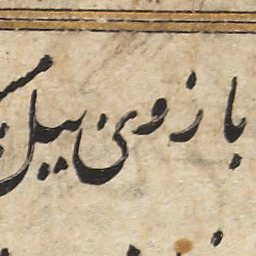 بازوی پیل